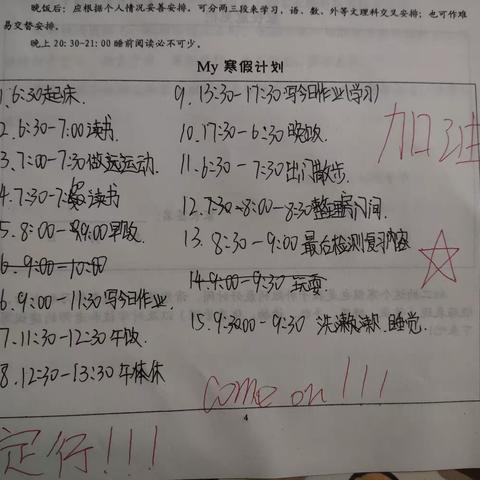 晚饭后：应根据个人情况妥善安排。可分两三段来学习，语、数、外等文理科交叉安排；也可作难
易交替安排。
晚上 20：30-21：00 睡前阅读必不可少。
My 寒假计划
1.6:30起床.
2.6:30-7:00读书.
3.7:00-7:30做运动.
4.7:30-7:读书
5.8:00-9:00早饭.
6.9:00-10:00
6.9:00-11:30写今日作业
7.11:30-12:30午饭.
8.12:30-13:30午休
9.13:30-17:30写今日作业(学习)
10.17:30-6:30晚饭.
11.6:30-7:30出门散步.
12.7:30-8:00-8:30整理房间.
13.8:30-9:00最后检测复习内容
14.9:00-9:30玩耍
15.9:30-9:30 洗漱.睡觉.
加油
come on!!!
定行!!!
4